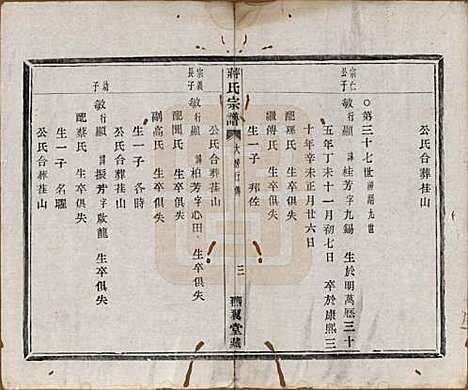 ○第三十七世遷錫九世
宗仁公子 敏行顯 諱桂芳字九錫 生於明萬曆三十
五年丁未十一月初七日 卒於康熙三
十年辛未正月廿六日
配瑶氏
繼傅氏
生一子 邦佐
公氏合葬荏山
蔣氏宗譜
大房行傳
三
燕翼堂藏
宗義長子 敏行顯 諱柏芳字心田 生卒俱失
配闕氏 生卒俱失
副高氏
生一子 各時
公氏合葬荏山
敏行顯 諱振芳字啟龍 生卒俱失
配蔡氏 生卒俱失
生一子 名曜
公氏合葬荏山